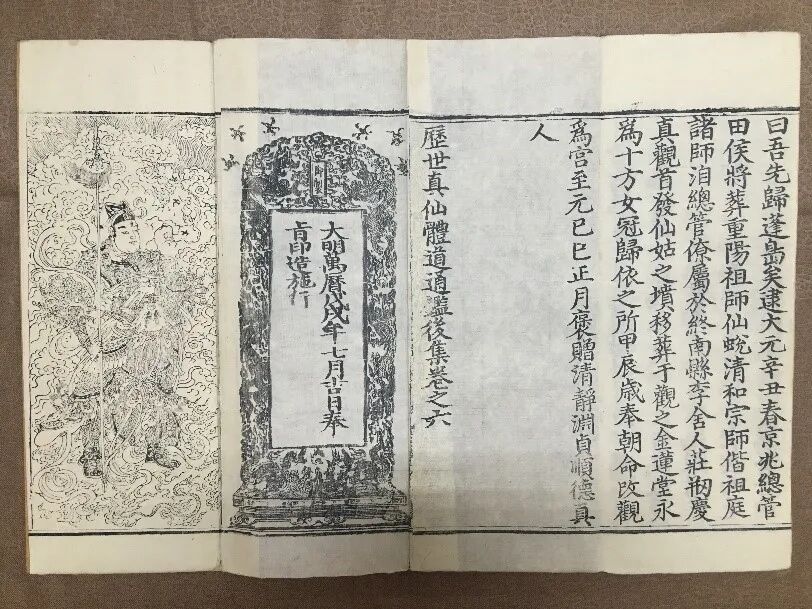 曰吾先歸蓬島矣逮大元辛丑春京兆總管
田侯將葬重陽祖師仙蛻清和宗師偕祖庭
諸師洎總管僚屬於終南縣李舍人莊剏慶
真觀首發仙姑之墳移葬于觀之金蓮堂永
為十方女冠歸依之所甲辰歲奉朝命改觀
為宮至元己巳正月褒贈清靜淵貞順德真
人
歷世真仙體道通鑑後集卷之六
御製
大明萬曆戊戌年七月吉日奉
旨印造施行